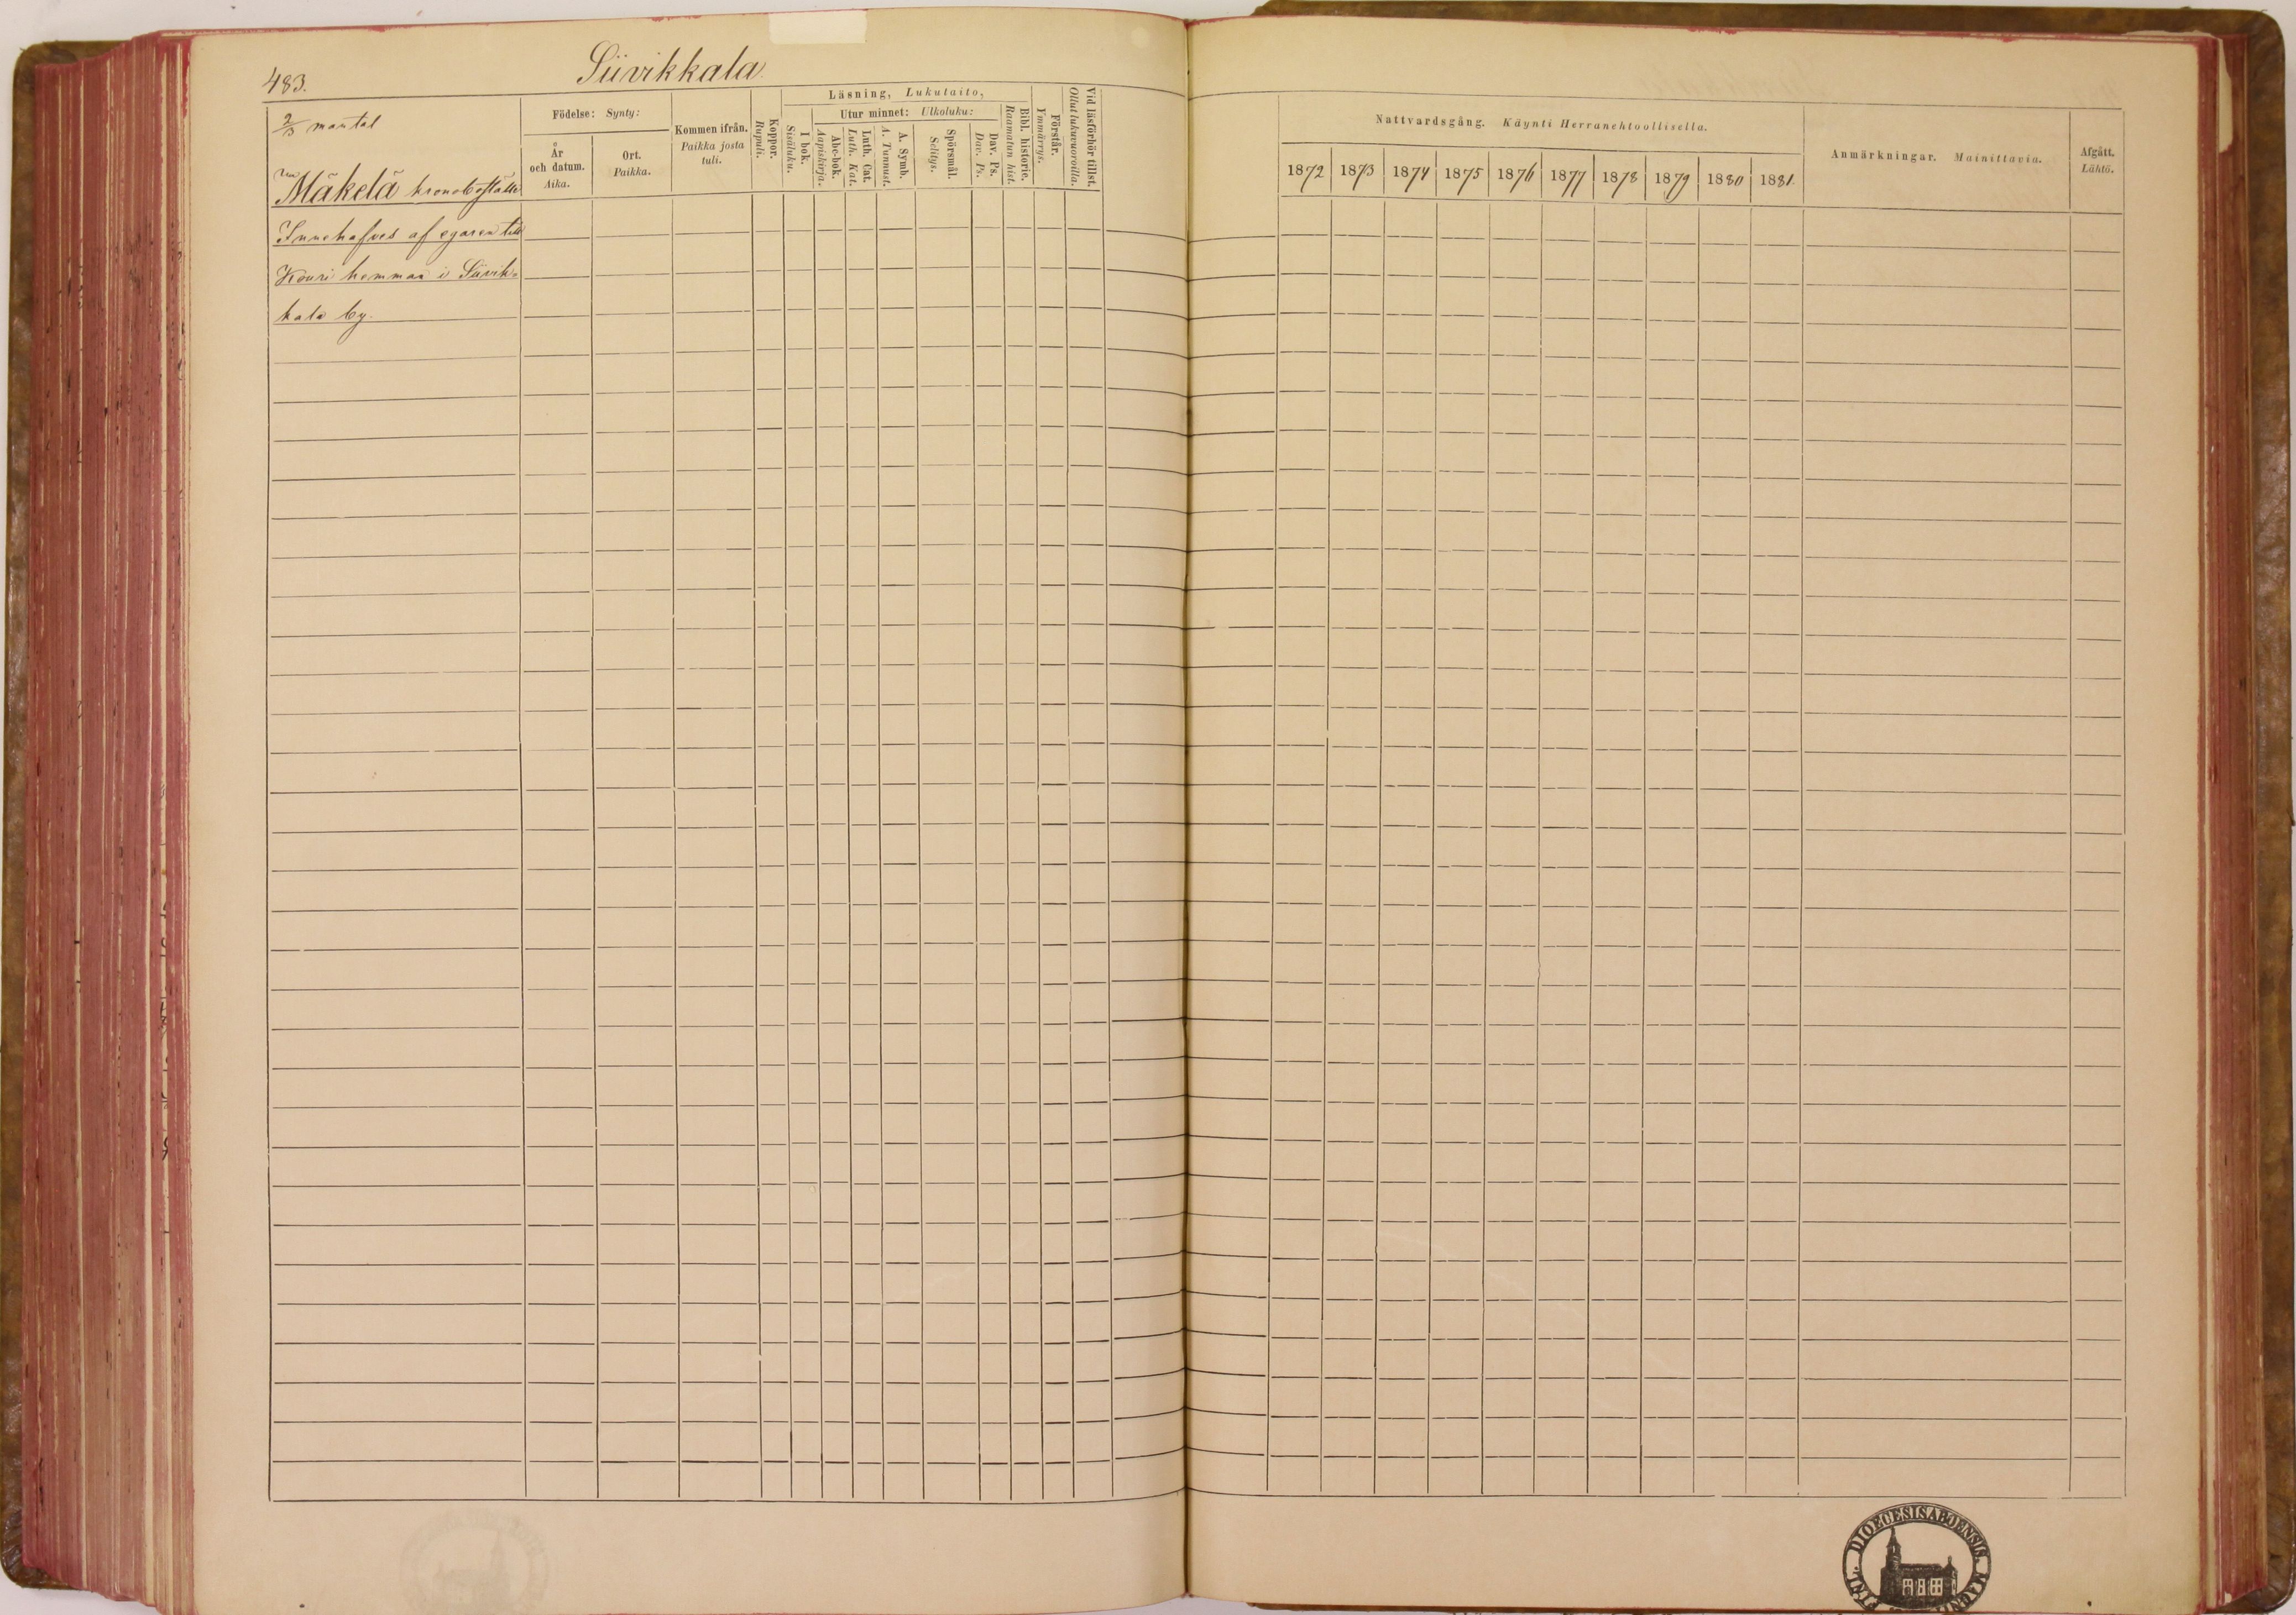 483.
Siivikkala.
2/3 mantal
Mäkelä kronoboställe
Innehafves af egaren till
Kouri hemman i Siivik-
kala by.
Födelse: Synty:
År
och datum.
Aika.
Ort.
Paikka.
Kommen ifrån.
Paikka josta
tuli.
Koppor.
Rupuli.
Läsning, Lukutaito,
I bok.
Sisäluku.
Utur minnet: Ulkoluku:
Abc-bok.
Aapiskirja.
Luth. Cat.
Luth. Kat.
A. Symb.
A. Tunnust.
Spörsmål.
Selitys.
Dav. Ps.
Dav. Ps.
Bibl. historie.
Raamatun hist.
Förstår.
Ymmärrys.
Vid läsförhör tillst.
Ollut lukuvuoroilla.
Nattvardsgång. Käynti Herranehtoollisella.
1872 1873 1874 1875 1876 1877 1878 1879 1880 1881.
Anmärkningar. Mainittavia.
Afgått.
Lähtö.
DIOECESIS ABOENSIS